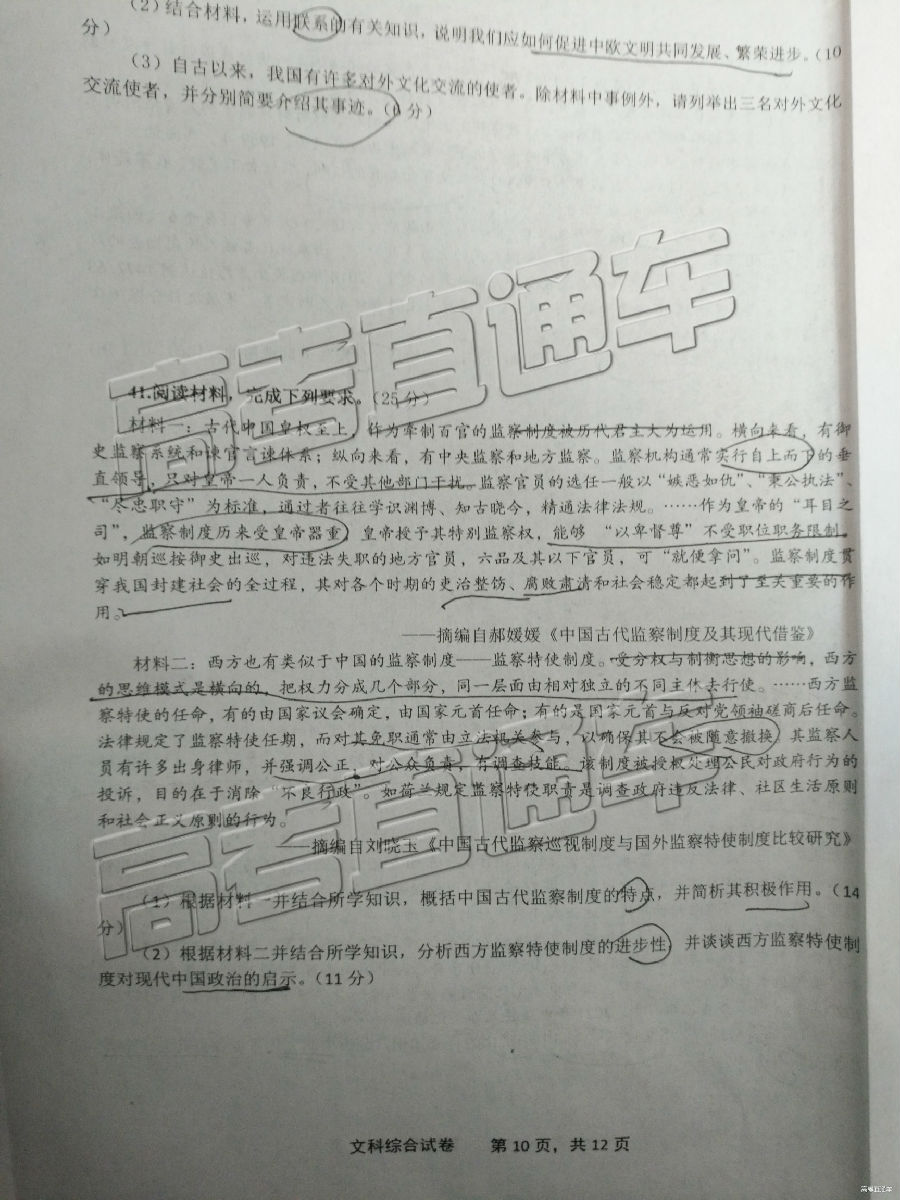 (2)结合材料,运用联系的有关知识,说明我们应如何促进中欧文明共同发展、繁荣进步。(10
分)
(3)自古以来,我国有许多对外文化交流的使者。除材料中事例外,请列举出三名对外文化
交流使者,并分别简要介绍其事迹。(6 分)
41.阅读材料,完成下列要求。(25 分)
材料一:古代中国皇权至上,作为牵制百官的监察制度被历代君主大为运用。横向来看,有御
史监察系统和谏官言谏体系;纵向来看,有中央监察和地方监察。监察机构通常实行自上而下的垂
直领导,只对皇帝一人负责,不受其他部门干扰。监察官员的选任一般以“嫉恶如仇”、“秉公执法”、
“尽忠职守”为标准,通过者往往学识渊博、知古晓今,精通法律法规。……作为皇帝的“耳目之
司”,监察制度历来受皇帝器重,皇帝授予其特别监察权,能够 “以卑督尊”不受职位职务限制,
如明朝巡按御史出巡,对违法失职的地方官员,六品及其以下官员,可“就便拿问”。监察制度贯
穿我国封建社会的全过程,其对各个时期的吏治整饬、腐败肃清和社会稳定都起到了至关重要的作
用。
——摘编自郝媛媛《中国古代监察制度及其现代借鉴》
材料二:西方也有类似于中国的监察制度——监察特使制度。受分权与制衡思想的影响,西方
的思维模式是横向的,把权力分成几个部分,同一层面由相对独立的不同主体去行使。……西方监
察特使的任命,有的由国家议会确定,由国家元首任命;有的是国家元首与反对党领袖磋商后任命。
法律规定了监察特使任期,而对其免职通常由立法机关参与,以确保其不会被随意撤换,其监察人
员有许多出身律师,并强调公正,对公众负责,有调查技能。该制度被授权处理公民对政府行为的
投诉,目的在于消除“不良行政”。如荷兰规定监察特使职责是调查政府违反法律、社区生活原则
和社会正义原则的行为。
——摘编自刘晓玉《中国古代监察巡视制度与国外监察特使制度比较研究》
(1)根据材料一并结合所学知识,概括中国古代监察制度的特点,并简析其积极作用。(14
分)
(2)根据材料二并结合所学知识,分析西方监察特使制度的进步性,并谈谈西方监察特使制
度对现代中国政治的启示。(11 分)
文科综合试卷 第 10 页,共 12 页
高考直通车
高考直通车
高考直通车